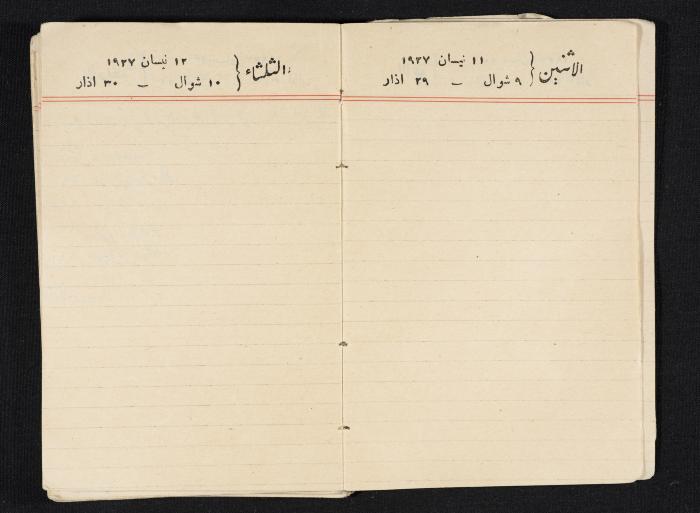 الاثنين { ١١ نيسان ١٩٢٧
٩ شوال – ٢٩ اذار
الثلثاء { ١٢ نيسان ١٩٢٧
١٠ شوال – ٣٠ اذار